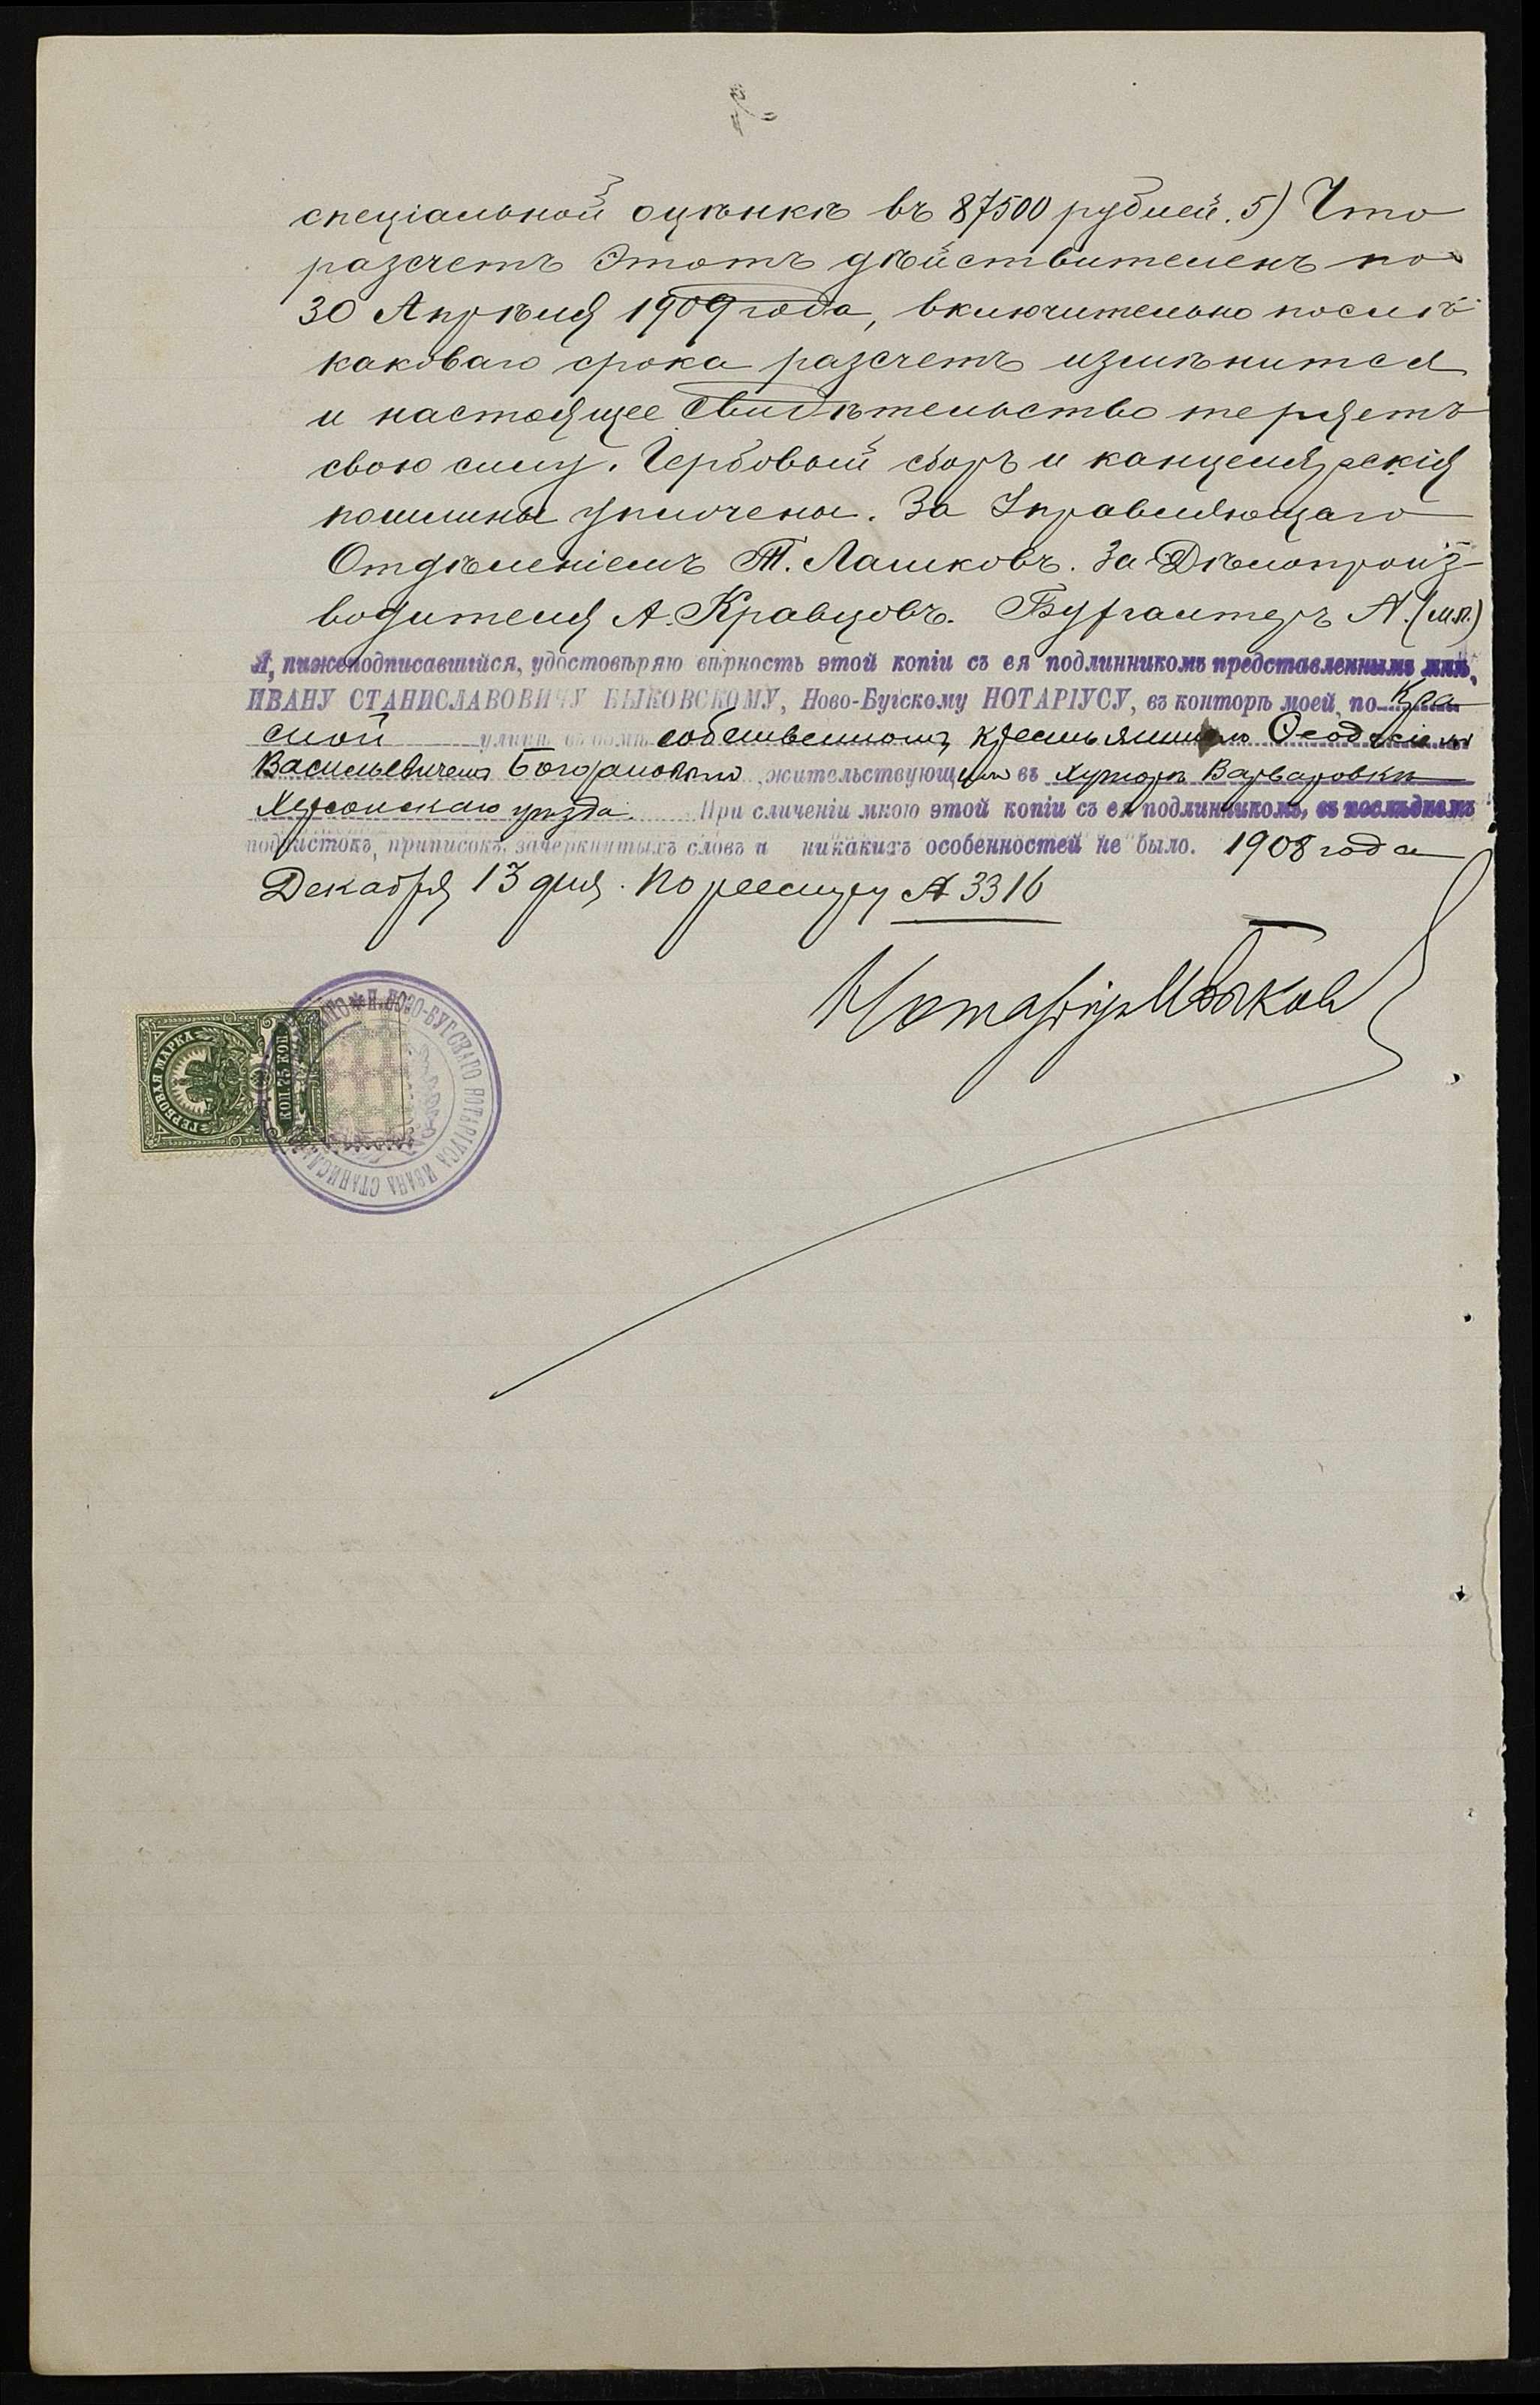 спеціальной оцѣнкѣ въ 87500 рублей. 5) Что
разсчетъ этотъ дѣйствителенъ по
30 Апрѣля 1909 года, включительно послѣ
каковаго срока разсчетъ измѣнится
и настоящее свидѣтельство теряетъ
свою силу. Гербовый сборъ и канцелярскія
пошлины уплочены. За Управляющаго
Отдѣленіемъ Т. Лашковъ. За Дѣлопроиз-
водителя А. Кравцовъ. Бухгалтеръ А. (м.п.)
Я, нижеподписавшійся, удостовѣряю вѣрность этой копіи съ ея подлинникомъ представленнымъ мнѣ,
ИВАНУ СТАНИСЛАВОВИЧУ БЫКОВСКОМУ, Ново-Бугскому НОТАРІУСУ, въ конторѣ моей, по Кра
сной улицѣ въ домѣ собственномъ крестьяниномъ Ѳеодосіемъ
Васильевичемъ жительствующимъ въ хуторѣ Варваровкѣ
Херсонскаго уѣзда. При сличеніи мною этой копіи съ ея подлинникомъ, въ послѣднемъ
подчистокъ, приписокъ, зачеркнутыхъ словъ и никакихъ особенностей не было. 1908 года
Декабря 13 дня. По реестру № 3316
Нотаріусъ И Быков
ГЕРБОВАЯ МАРКА
КОП. 75 КОП.
Н. НОВО-БУГСКАГО НОТАРІУСА ИВАНА СТАНИСЛАВ